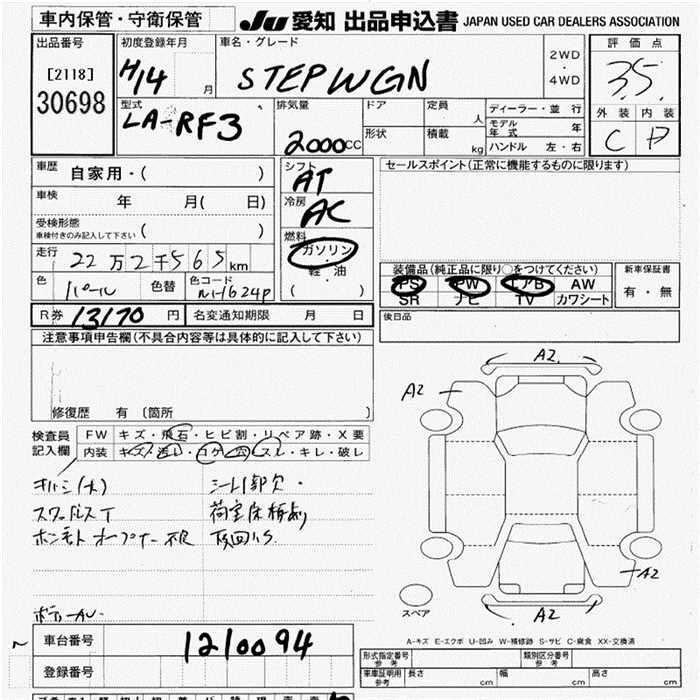 車内保管・守衛保管
JU 愛知 出品申込書 JAPAN USED CAR DEALERS ASSOCIATION
出品番号
[2118]
30698
初度登録年月
H14 月
車名・グレード
STEPWGN
2WD
・
4WD
評価点
3.5
外装 内装
C D
型式
LA-RF3
排気量
2000cc
ドア
形状
定員 人
積載 kg
ディーラー・並行
モデル年式 年
ハンドル 左・右
車歴 自家用・( )
車検 年 月( 日)
受検形態
車検付きのみ記入して下さい ( )
走行 22万2千565km
色 パール 色替 色コード NH624P
シフト
AT
冷房
AC
燃料
ガソリン
・
軽・油
( )
R券 13170 円 名変通知期限 月 日
セールスポイント(正常に機能するものに限ります)
装備品(純正品に限り○をつけてください)
PS PW エアB AW
SR ナビ TV カワシート
新車保証書
有・無
後日品
注意事項申告欄(不具合内容等は具体的に記入して下さい)
修復歴 有 〔箇所 〕
検査員記入欄
FW キズ・飛石・ヒビ割・リペア跡・X要
内装 キズ・汚レ・コゲ・穴・スレ・キレ・破レ
キバミ(大)
シート1部欠・
スタッドレスT
ボンネットオープナー不良
A2
A2
A2
A2
スペア
A-キズ E-エクボ U-凹み W-補修跡 S-サビ C-腐食 XX-交換済
車台番号 1210094
登録番号
形式指定番号 参考
類別区分番号 参考
車庫証明用 参考 長さ cm 幅 cm 高さ cm